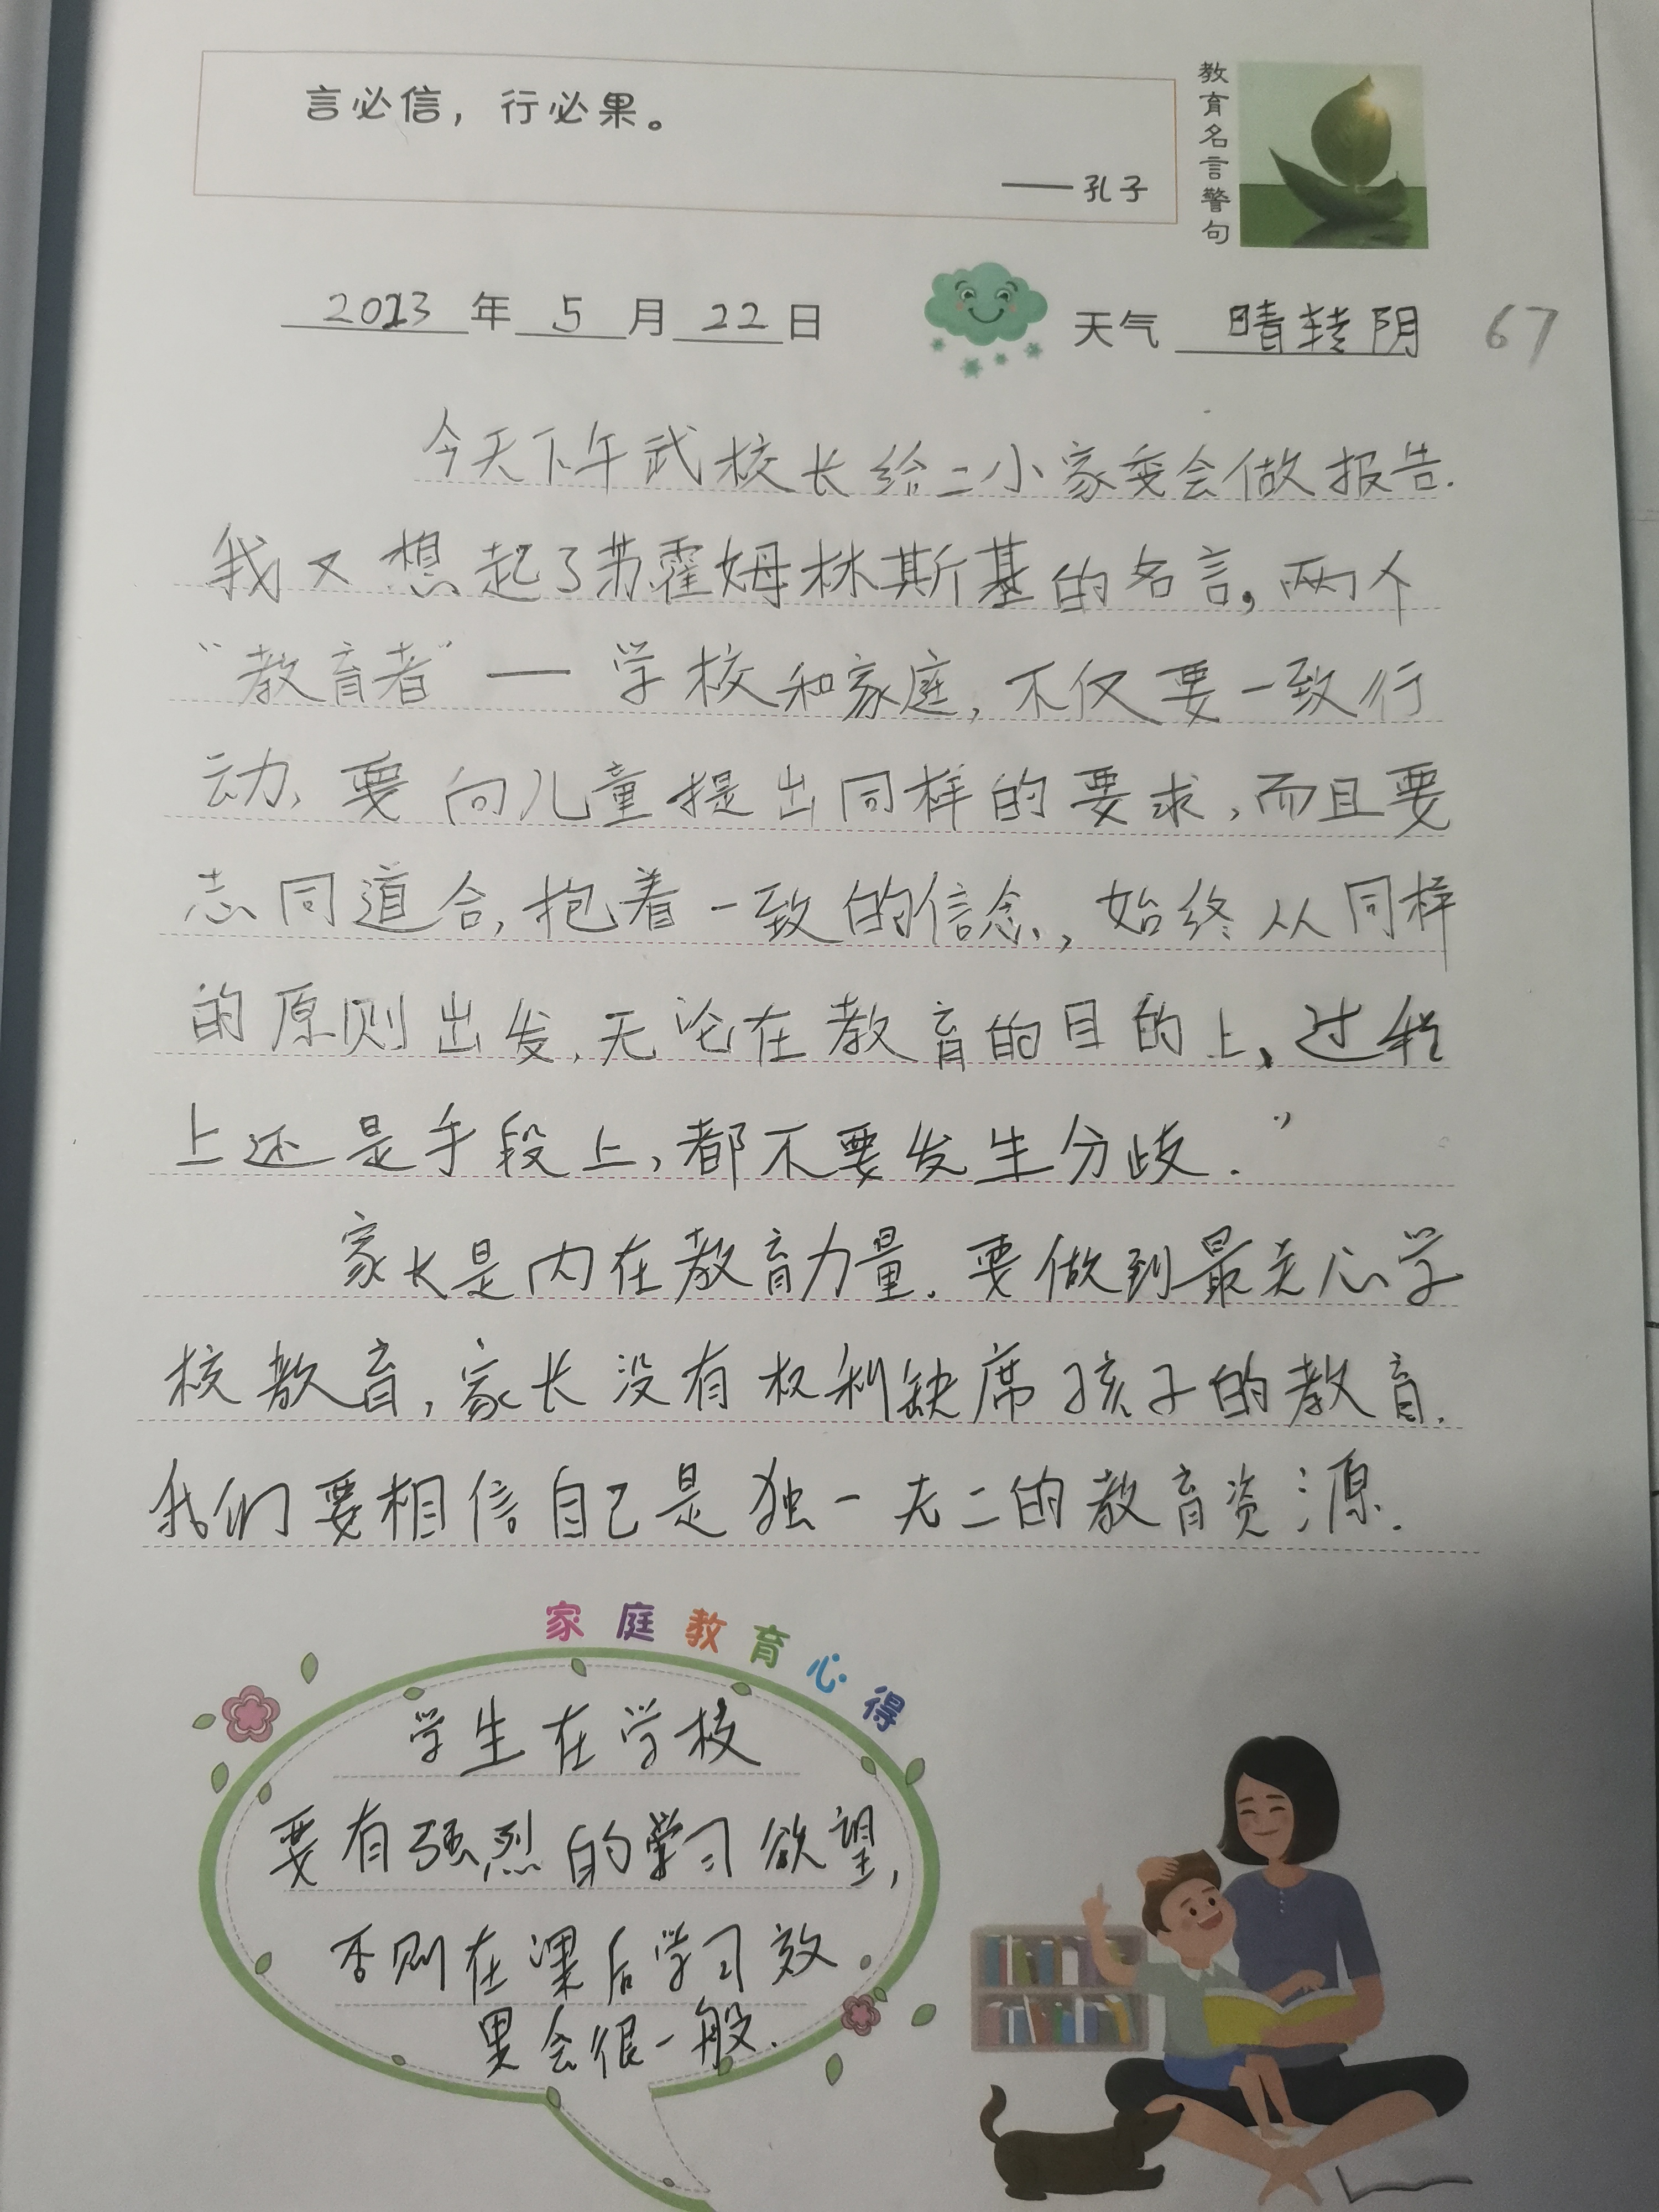 言必信，行必果。
——孔子
教育名言警句
2023年5月22日
天气 晴转阴
67
今天下午武校长给二小家委会做报告.
我又想起了苏霍姆林斯基的名言，两个
“教育者”—学校和家庭，不仅要一致行
动，要向儿童提出同样的要求，而且要
志同道合，抱着一致的信念，始终从同样
的原则出发，无论在教育的目的上、过程
上还是手段上，都不要发生分歧.”
家长是内在教育力量.要做到最走心学
校教育，家长没有权利缺席孩子的教育.
我们要相信自己是独一无二的教育资源.
家庭教育心得
学生在学校
要有强烈的学习欲望，
否则在课后学习效
果会很一般.